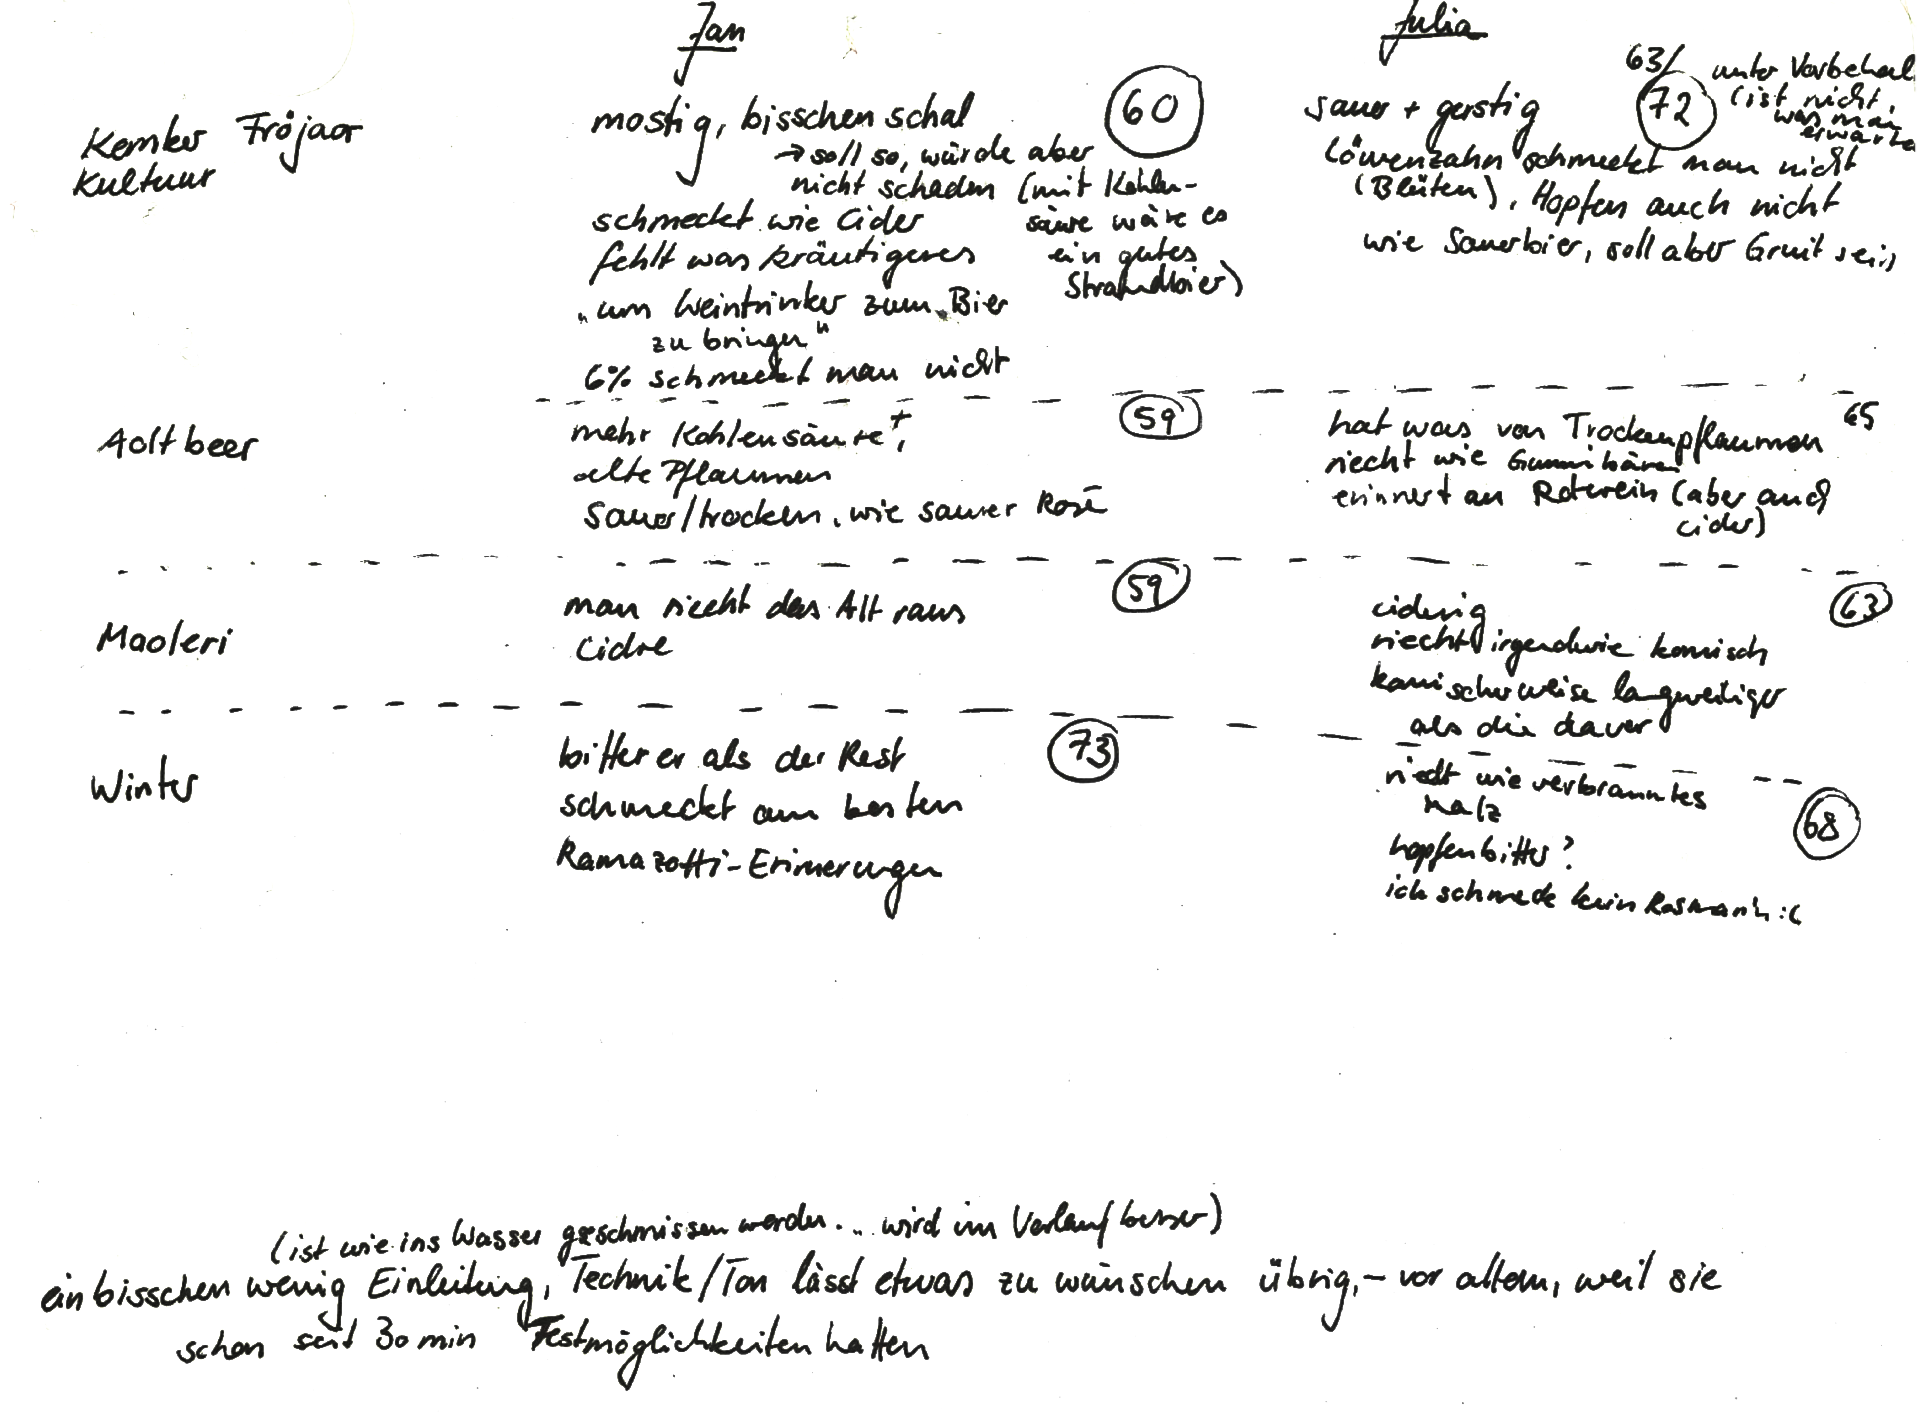 Jan
Julia
Kemker Fröjaor
Kultuur
mostig, bisschen schal
60
→ soll so, würde aber
nicht schaden (mit Kohlen-
säure wäre es
ein gutes
Strandbier)
schmeckt wie Cider
fehlt was kräutigeres
„um Weintrinker zum Bier
zu bringen"
6% schmeckt man nicht
63/
72
unter Vorbehal
(ist nicht,
was man
erwarte
sauer + gerstig
Löwenzahn schmeckt man nicht
(Blüten), Hopfen auch nicht
wie Sauerbier, soll aber Gruit sein
Aoltbeer
mehr Kohlensäure +,
alte Pflaumen
sauer/trocken, wie saurer Rosé
59
hat was von Trockenpflaumen
65
riecht wie Gummibären
erinnert an Rotwein (aber auch
cider)
Maoleri
man riecht das Alt raus
Cidre
59
ciderig
63
riecht irgendwie komisch
komischerweise langweiliger
als die davor
Winter
bitterer als der Rest
schmeckt am besten
Ramazotti-Erinnerungen
73
riecht wie verbranntes
Malz
68
hopfenbitter?
ich schmecke kein Rosmarin :(
(ist wie ins Wasser geschmissen werden... wird im Verlauf besser)
ein bisschen wenig Einleitung, Technik/Ton lässt etwas zu wünschen übrig, - vor allem, weil sie
schon seit 30 min Testmöglichkeiten hatten